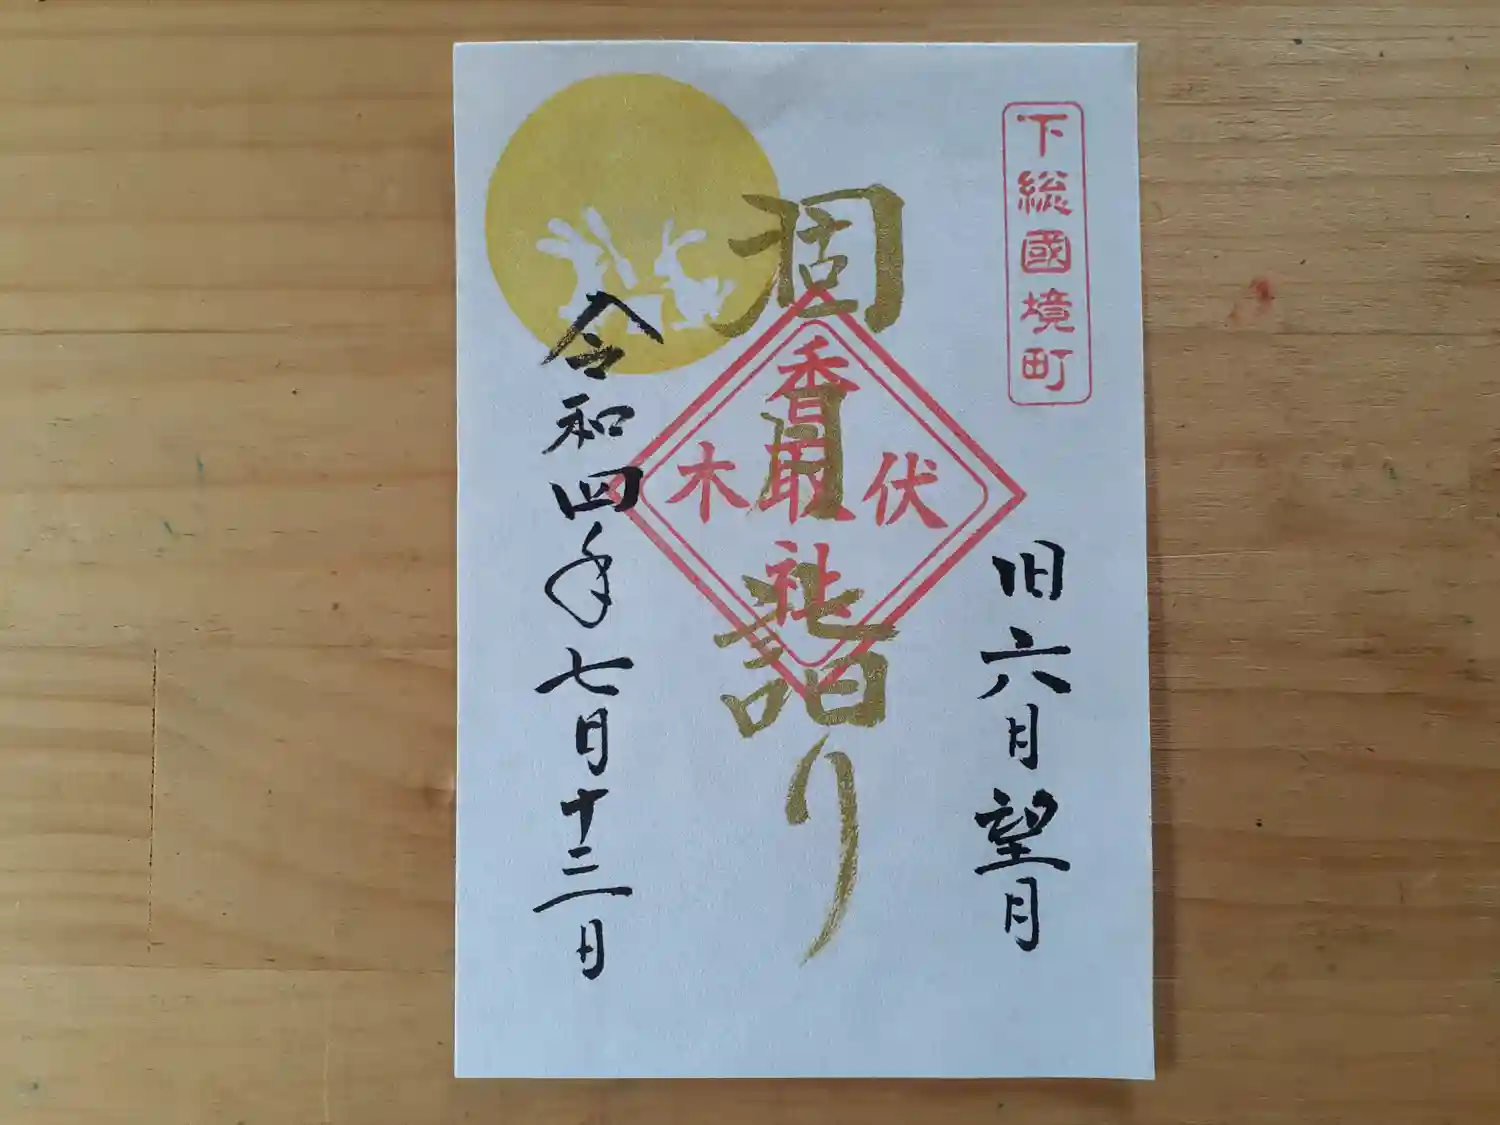 下総國境町
旧六月望月
月詣り
伏木
香取社
令和四年七月十三日